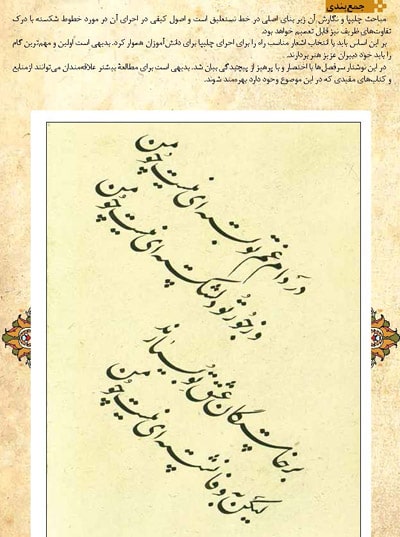 جمع‌بندی
مباحث چلیپا و نگارش آن زیر بنای اصلی در خط نستعلیق است و اصول کیفی در اجرای آن در مورد خطوط شکسته با درک
تفاوت‌های ظریف نیز قابل تعمیم خواهد بود.
بر این اساس باید با انتخاب اشعار مناسب راه را برای اجرای چلیپا برای دانش‌آموزان هموار کرد. بدیهی است اولین و مهم‌ترین گام
را باید خود دبیران عزیز هنر بردارند.
در این نوشتار سرفصل‌ها با اختصار و با پرهیز از پیچیدگی بیان شد. بدیهی است برای مطالعهٔ بیشتر علاقه‌مندان می‌توانند از منابع
و کتاب‌های مفیدی که در این موضوع وجود دارد بهره‌مند شوند.
در دام غم تو بسته‌ای نیست چو من
وز جور تو دلشکسته‌ای نیست چو من
برخاستگان عشق تو بسیارند
لیکن به وفا نشسته‌ای نیست چو من